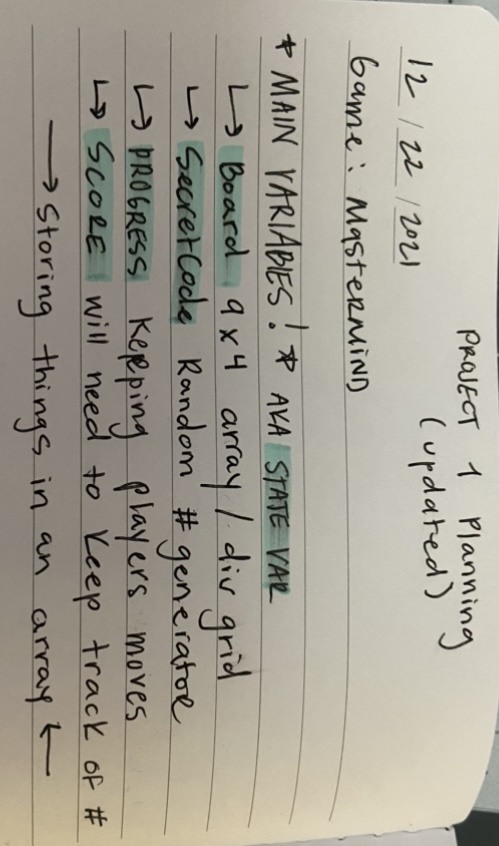 PROJECT 1 Planning
(updated)
12/22/2021
Game: MasterMIND
* MAIN VARIABLES! * AKA STATE VAR
↳ Board 9x4 array / div grid
↳ SecretCode Random # generator
↳ PROGRESS Kepping players moves
↳ SCORE will need to keep track of #
→ Storing things in an array ←